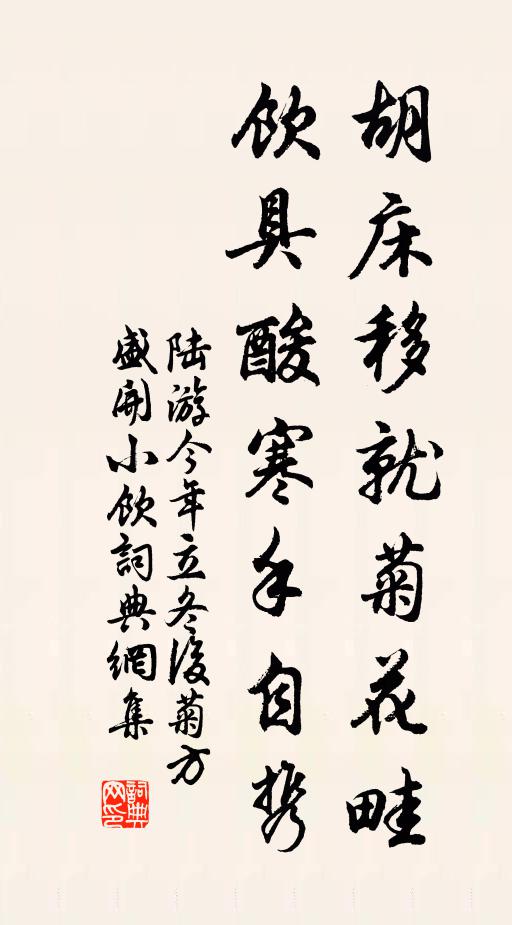 胡床移就菊花畦
饮具酸寒手自携
陆游今年立冬後菊方
盛開小饮詞典網集
詞典
网印